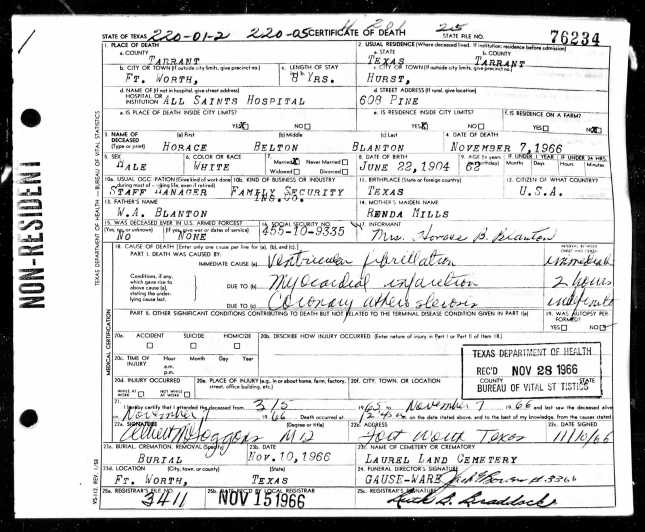 STATE OF TEXAS 220-01-2 220-05 CERTIFICATE OF DEATH STATE FILE NO. 76234
1. PLACE OF DEATH 2. USUAL RESIDENCE (Where deceased lived. If institution: residence before admission)
a. COUNTY a. STATE b. COUNTY
TARRANT TEXAS TARRANT
b. CITY OR TOWN (If outside city limits, give precinct no.) c. LENGTH OF STAY c. CITY OR TOWN (If outside city limits, give precinct no.)
FT. WORTH, YRS. HURST,
d. NAME OF (If not in hospital, give street address) d. STREET ADDRESS (If rural, give location)
HOSPITAL OR
INSTITUTION ALL SAINTS HOSPITAL 608 PINE
e. IS PLACE OF DEATH INSIDE CITY LIMITS? e. IS RESIDENCE INSIDE CITY LIMITS? f. IS RESIDENCE ON A FARM?
YES NO YES NO YES NO
3. NAME OF DECEASED (a) First (b) Middle (c) Last 4. DATE OF DEATH
(Type or print) HORACE BELTON BLANTON NOVEMBER 7, 1966
5. SEX 6. COLOR OR RACE 7. Married Never Married 8. DATE OF BIRTH 9. AGE IF UNDER 1 YEAR IF UNDER 24 HRS.
MALE WHITE Widowed Divorced JUNE 22, 1904 62
10a. USUAL OCCUPATION (Give kind of work done 10b. KIND OF BUSINESS OR INDUSTRY 11. BIRTHPLACE (State or foreign country) 12. CITIZEN OF WHAT COUNTRY?
during most of working life, even if retired)
STAFF MANAGER FAMILY SECURITY INS. CO. TEXAS U.S.A.
13. FATHER'S NAME 14. MOTHER'S MAIDEN NAME
W.A. BLANTON RENDA MILLS
15. WAS DECEASED EVER IN U.S. ARMED FORCES? 16. SOCIAL SECURITY NO. 17. INFORMANT
(Yes, no, or unknown) (If yes, give war or dates of service)
NO NONE 455-10-9335 Mrs. Horace B. Blanton
18. CAUSE OF DEATH [Enter only one cause per line for (a), (b), and (c).] INTERVAL BETWEEN ONSET AND DEATH
PART I. DEATH WAS CAUSED BY:
IMMEDIATE CAUSE (a) Ventricular fibrillation immediate
Conditions, if any, which gave rise to above cause (a), stating the underlying cause last.
DUE TO (b) Myocardial infarction 2 hours
DUE TO (c) Coronary atherosclerosis indefinite
PART II. OTHER SIGNIFICANT CONDITIONS CONTRIBUTING TO DEATH BUT NOT RELATED TO THE TERMINAL DISEASE CONDITION GIVEN IN PART I(a) 19. WAS AUTOPSY PERFORMED?
YES NO
20a. ACCIDENT SUICIDE HOMICIDE 20b. DESCRIBE HOW INJURY OCCURRED (Enter nature of injury in Part I or Part II of Item 18.)
20c. TIME OF INJURY Hour Month Day Year
a.m.
p.m.
TEXAS DEPARTMENT OF HEALTH
REC'D NOV 28 1966
BUREAU OF VITAL STATISTICS
20d. INJURY OCCURRED 20e. PLACE OF INJURY (e.g., in or about home, farm, factory, street, office building, etc.) 20f. CITY, TOWN, OR LOCATION COUNTY STATE
WHILE AT WORK NOT WHILE AT WORK
21. I hereby certify that I attended the deceased from 3/5 1965 to November 7 1966 and last saw the deceased alive
on November 1966 Death occurred at m on the date stated above, and to the best of my knowledge, from the causes stated.
22a. SIGNATURE (Degree or title) 22b. ADDRESS 22c. DATE SIGNED
MD Fort Worth Texas 11/10/66
23a. BURIAL, CREMATION, REMOVAL 23b. DATE 23c. NAME OF CEMETERY OR CREMATORY
BURIAL NOV. 10, 1966 LAUREL LAND CEMETERY
23d. LOCATION (City, town, or county) (State) 24. FUNERAL DIRECTOR'S SIGNATURE
FT. WORTH, TEXAS GAUSE-WARE
25a. REGISTRAR'S FILE NO. 25b. DATE REC'D BY LOCAL REGISTRAR 25c. REGISTRAR'S SIGNATURE
3411 NOV 15 1966
NON-RESIDENT
TEXAS DEPARTMENT OF HEALTH — BUREAU OF VITAL STATISTICS
MEDICAL CERTIFICATION
VS-112 REV. 1/58